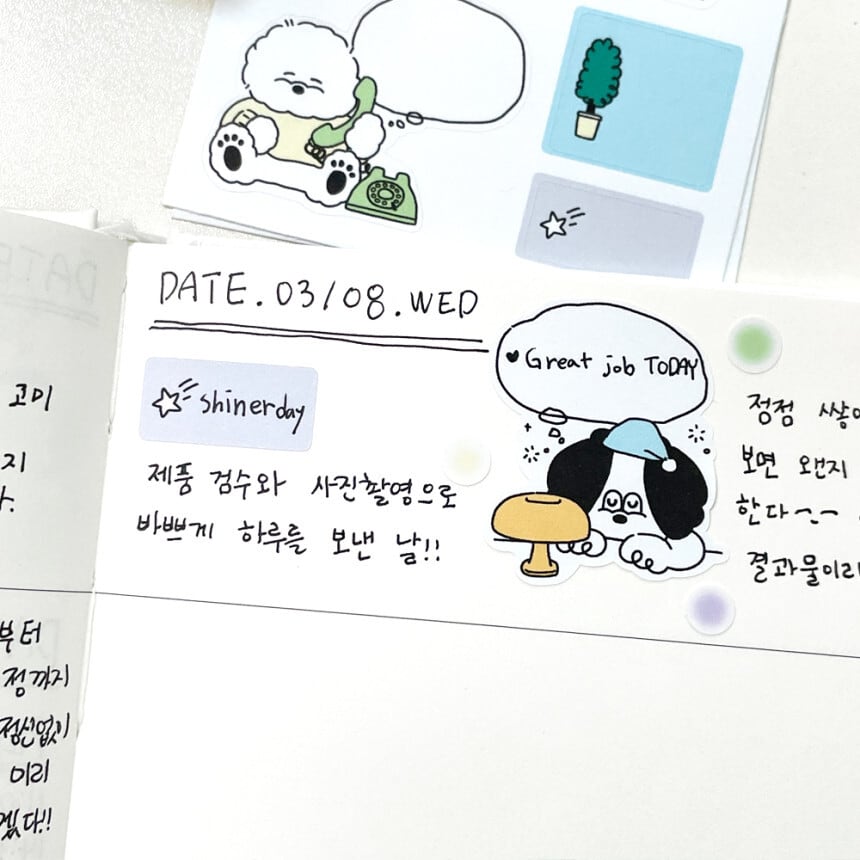 고미
지
부터
정까지
정신없이
미리
겠다!!
DATE.03/08.WED
shinerday
제품 검수와 사진촬영으로
바쁘게 하루를 보낸 날!!
♥Great job TODAY
정점
보면 왠지
한다~~
결과물이라